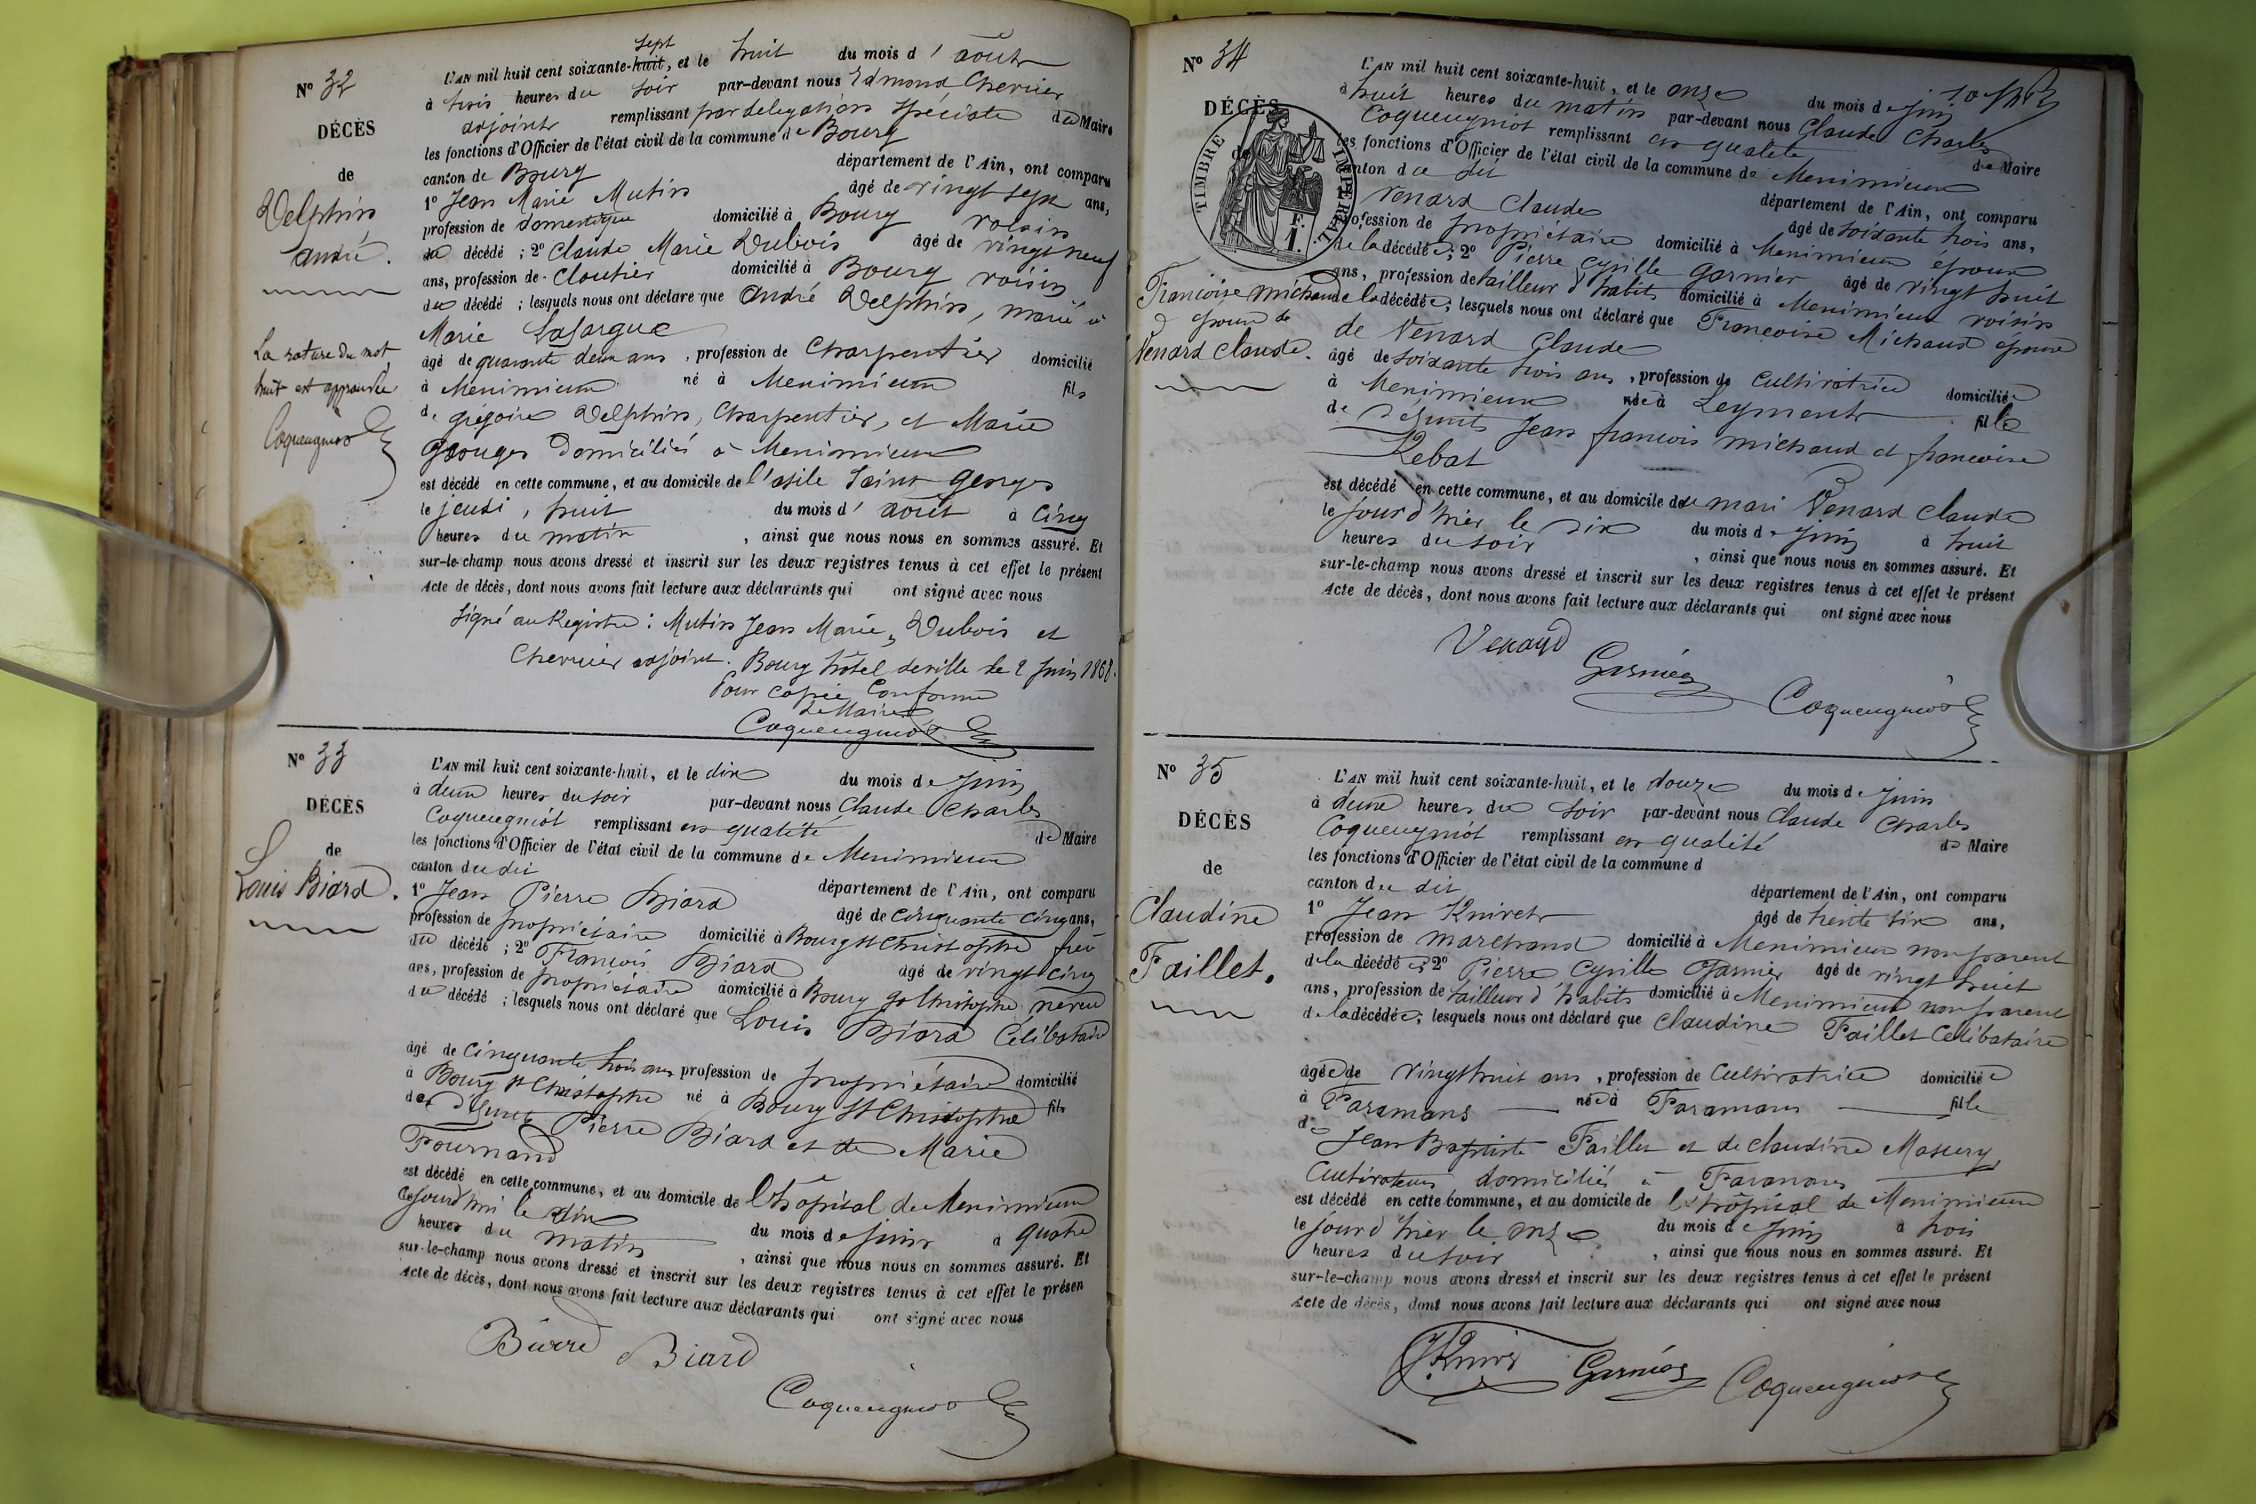 N° 32
DÉCÈS
de
Delphin
André.
La rature du mot
huit est approuvée
Coqueugniot
sept
L'AN mil huit cent soixante-huit, et le huit du mois d'août
à trois heures du soir par-devant nous Edmond Chervier
adjoint remplissant par délégation spéciale du Maire
les fonctions d'Officier de l'état civil de la commune de Bourg
canton de Bourg département de l'Ain, ont comparu
1° Jean Marie Mutin âgé de vingt sept ans,
profession de domestique domicilié à Bourg voisin
du décédé ; 2° Claude Marie Dubois âgé de vingt neuf
ans, profession de Cloutier domicilié à Bourg voisin
du décédé ; lesquels nous ont déclaré que André Delphin, marié à
Marie Lafargue
âgé de quarante deux ans, profession de Charpentier domicilié
à Meximieux né à Meximieux fils
de grégoire Delphin, Charpentier, et Marie
Georges domiciliés à Meximieux
est décédé en cette commune, et au domicile de l'asile Saint Georges
le jeudi, huit du mois d'août à cinq
heures du matin, ainsi que nous nous en sommes assuré. Et
sur-le-champ nous avons dressé et inscrit sur les deux registres tenus à cet effet le présent
Acte de décès, dont nous avons fait lecture aux déclarants qui ont signé avec nous
Signé au Registre : Mutin Jean Marie, Dubois et
Chervier adjoint. Bourg hôtel de ville le 2 juin 1868.
Pour copie Conforme
Le Maire
Coqueugniot
N° 33
DÉCÈS
de
Louis Biard.
L'AN mil huit cent soixante-huit, et le dix du mois de juin
à deux heures du soir par-devant nous Claude Charles
Coqueugniot remplissant en qualité de Maire
les fonctions d'Officier de l'état civil de la commune de Meximieux
canton du dit département de l'Ain, ont comparu
1° Jean Pierre Biard âgé de cinquante cinq ans,
profession de propriétaire domicilié à Bourg St Christophe frère
du décédé ; 2° François Biard âgé de vingt cinq
ans, profession de propriétaire domicilié à Bourg St Christophe neveu
du décédé ; lesquels nous ont déclaré que Louis Biard Célibataire
âgé de cinquante trois ans profession de propriétaire domicilié
à Bourg St Christophe né à Bourg St Christophe fils
des défunts Pierre Biard et de Marie
Fournand
est décédé en cette commune, et au domicile de l'hôpital de Meximieux
cejourd'hui le dix du mois de juin à quatre
heures du matin, ainsi que nous nous en sommes assuré. Et
sur-le-champ nous avons dressé et inscrit sur les deux registres tenus à cet effet le présen
Acte de décès, dont nous avons fait lecture aux déclarants qui ont signé avec nous
Biard
Coqueugniot
N° 34
DÉCÈS
de
TIMBRE IMPERIAL
1 F.
Françoise Michaud
épouse de
Venard Claude.
L'AN mil huit cent soixante-huit, et le onze du mois de juin
à huit heures du matin par-devant nous Claude Charles
Coqueugniot remplissant en qualité de Maire
les fonctions d'Officier de l'état civil de la commune de Meximieux
canton du dit département de l'Ain, ont comparu
Venard Claude âgé de soixante trois ans,
profession de propriétaire domicilié à Meximieux époux
de la décédée ; 2° Pierre Cyrille Garnier âgé de vingt huit
ans, profession de tailleur d'habits domicilié à Meximieux voisin
de la décédée ; lesquels nous ont déclaré que Françoise Michaud épouse
de Venard Claude
âgé de soixante trois ans, profession de Cultivatrice domiciliée
à Meximieux née à Leyment fille
de défunts Jean françois michaud et françoise
Rebat
est décédé en cette commune, et au domicile de de mari Venard Claude
le jour d'hier le dix du mois de juin à huit
heures du soir, ainsi que nous nous en sommes assuré. Et
sur-le-champ nous avons dressé et inscrit sur les deux registres tenus à cet effet le présent
Acte de décès, dont nous avons fait lecture aux déclarants qui ont signé avec nous
Venard
Garnier
Coqueugniot
N° 35
DÉCÈS
de
Claudine
Faillet.
L'AN mil huit cent soixante-huit, et le douze du mois de juin
à deux heures du soir par-devant nous Claude Charles
Coqueugniot remplissant en qualité de Maire
les fonctions d'Officier de l'état civil de la commune d
canton du dit département de l'Ain, ont comparu
1° Jean Knivet âgé de trente six ans,
profession de marchand domicilié à Meximieux non parent
de la décédée ; 2° Pierre Cyrille Garnier âgé de vingt huit
ans, profession de tailleur d'habits domicilié à Meximieux non parent
de la décédée ; lesquels nous ont déclaré que Claudine Faillet Célibataire
âgée de vingt huit ans, profession de Cultivatrice domiciliée
à Faramans née à Faramans fille
de Jean Baptiste Faillet et de Claudine Massery
Cultivateurs domiciliés à Faramans
est décédé en cette commune, et au domicile de l'hôpital de Meximieux
le jour d'hier le onze du mois de juin à trois
heures du soir, ainsi que nous nous en sommes assuré. Et
sur-le-champ nous avons dressé et inscrit sur les deux registres tenus à cet effet le présent
Acte de décès, dont nous avons fait lecture aux déclarants qui ont signé avec nous
J. Knivet Garnier Coqueugniot